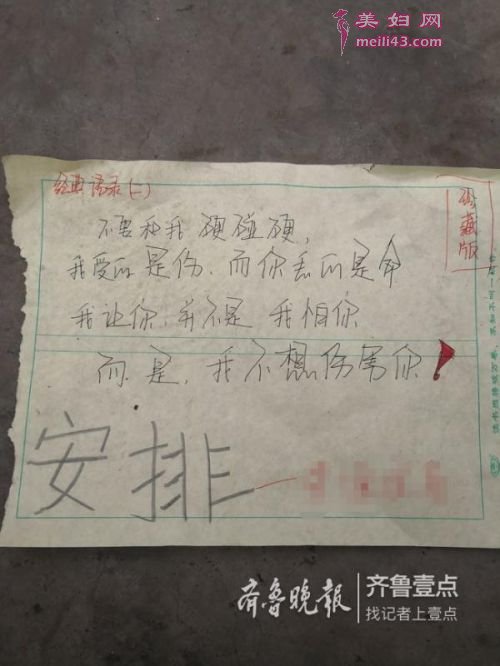 美妇网
meili43.com
经典语录(一)
珍藏版
不要和我硬碰硬,
我受的是伤.而你丢的是命
我让你,并不是 我怕你
而是,我不想伤害你!
安排
齐鲁晚报 齐鲁壹点
找记者上壹点